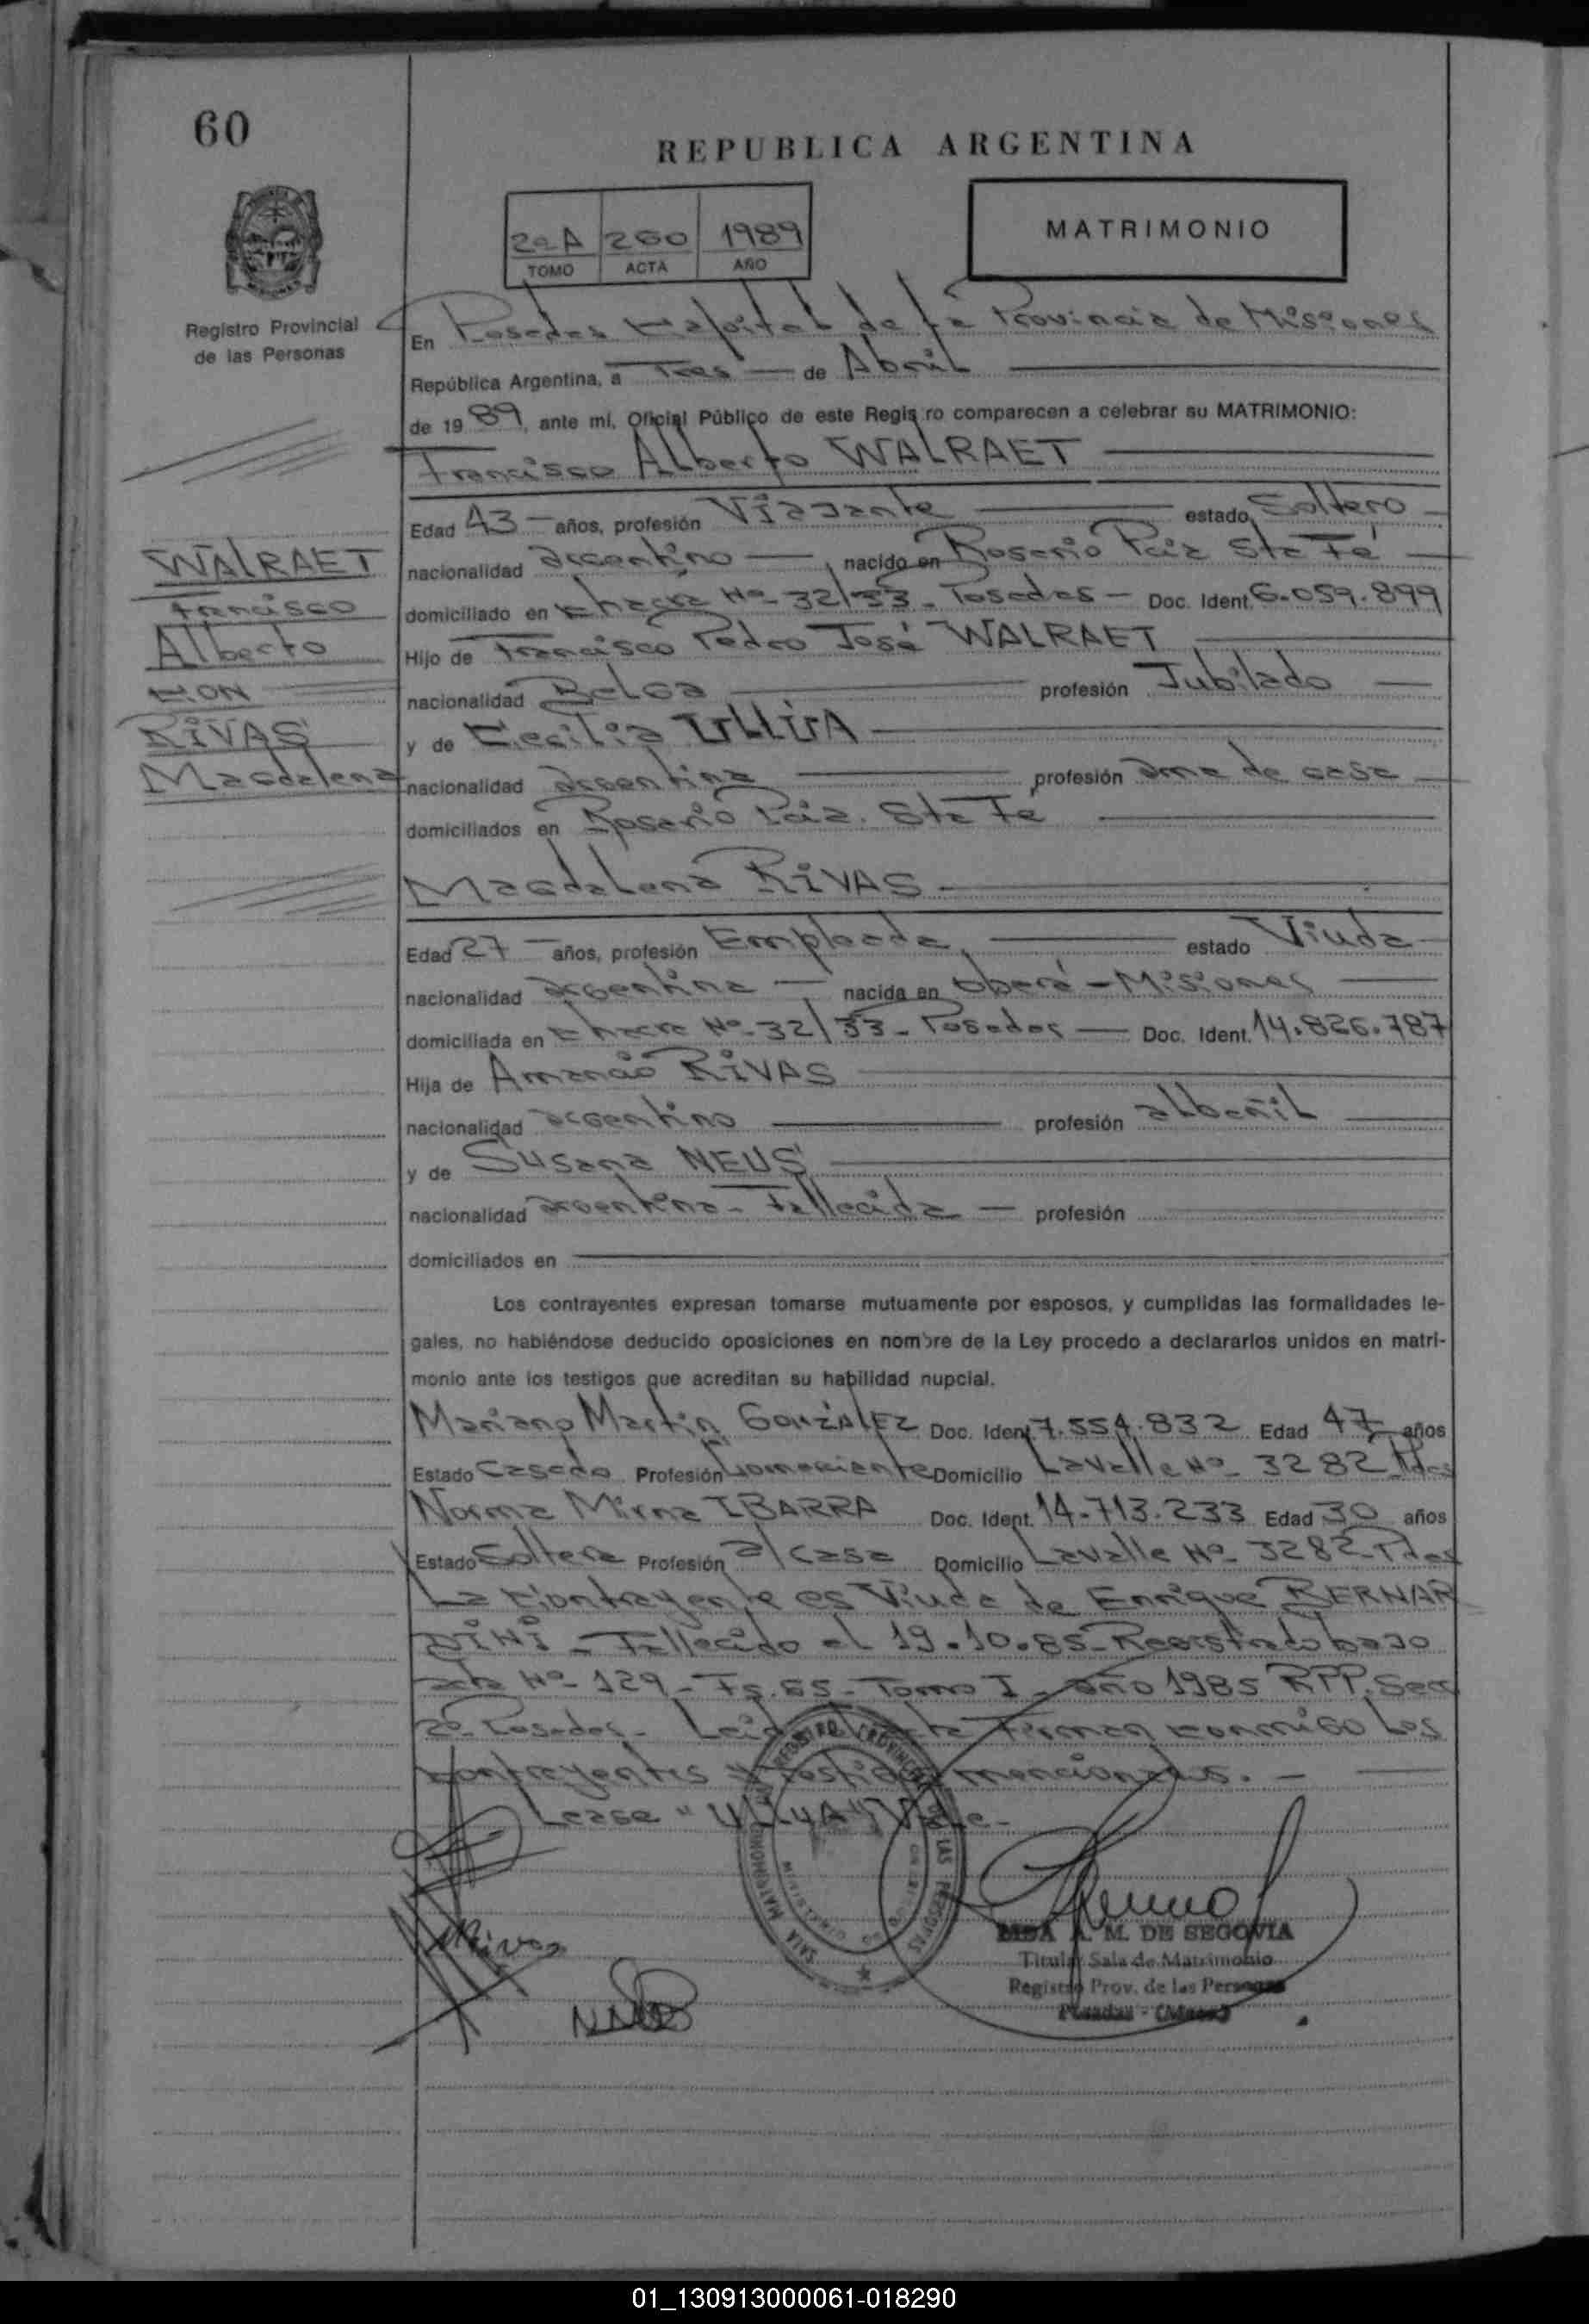 60
REPUBLICA ARGENTINA
2º A 260 1989
TOMO ACTA AÑO
MATRIMONIO
Registro Provincial
de las Personas
En Posadas Capital de la Provincia de Misiones
República Argentina, a Tres de Abril
de 1989, ante mi, Oficial Público de este Regis ro comparecen a celebrar su MATRIMONIO:
Francisco Alberto WALRAET
Edad 43 años, profesión Viajante estado Soltero
nacionalidad argentino nacido en Rosario Pcia Sta Fé
domiciliado en Chacra Nº 32/33 - Posadas - Doc. Ident. 6.059.899
Hijo de Francisco Pedro José WALRAET
nacionalidad Belga profesión Jubilado
y de Cecilia
nacionalidad argentina profesión ama de casa
domiciliados en Rosario Pcia. Sta Fé
WALRAET
Francisco
Alberto
CON
RIVAS
Magdalena
Magdalena RIVAS
Edad 27 años, profesión Empleada, estado Viuda
nacionalidad argentina nacida en Oberá - Misiones
domiciliada en Chacra Nº 32/33 - Posadas Doc. Ident. 14.826.787
Hija de Amancio RIVAS
nacionalidad argentino profesión albañil
y de Susana NEUS
nacionalidad argentina - Fallecida profesión
domiciliados en
Los contrayentes expresan tomarse mutuamente por esposos, y cumplidas las formalidades le-
gales, no habiéndose deducido oposiciones en nombre de la Ley procedo a declararlos unidos en matri-
monio ante los testigos que acreditan su habilidad nupcial.
Mariano Martin GONZALEZ Doc. Ident 7.554.832 Edad 47 años
Estado Casado Profesión Comerciante Domicilio Lavalle Nº 3282 Pdas
Norma Mirna IBARRA Doc. Ident. 14.713.233 Edad 30 años
Estado Soltera Profesión a/casa Domicilio Lavalle Nº 3282 - Pdas
La Contrayente es Viuda de Enrique BERNAR
DINI - Fallecido el 19.10.85 - Registrado bajo
acta Nº 129 - Fº. 65 - Tomo I - año 1985 RPP. Secc
2º Posadas - Leida el acta Firman conmigo los
contrayentes y testigos mencionados. -
Lease "ULLUA" Vale -
REGISTRO PROVINCIAL DE LAS PERSONAS
SALA MATRIMONIO
MRivas
A. M. DE SEGOVIA
Titular Sala de Matrimonio
Registro Prov. de las Personas
Posadas - (Mnes)
01_130913000061-018290